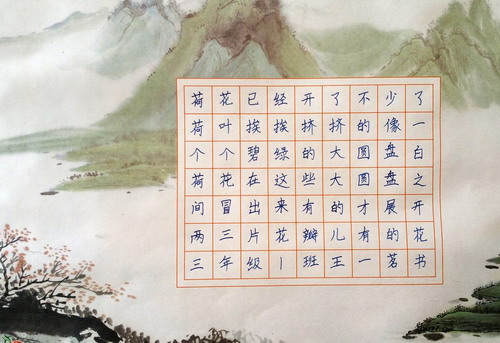 荷花已经开了不少了
荷叶挨挨挤挤的像一
个个碧绿的大圆盘白
荷花在这些大圆盘之
间冒出来有的才展开
两三片花瓣儿有的花
三年级1班王一茗书